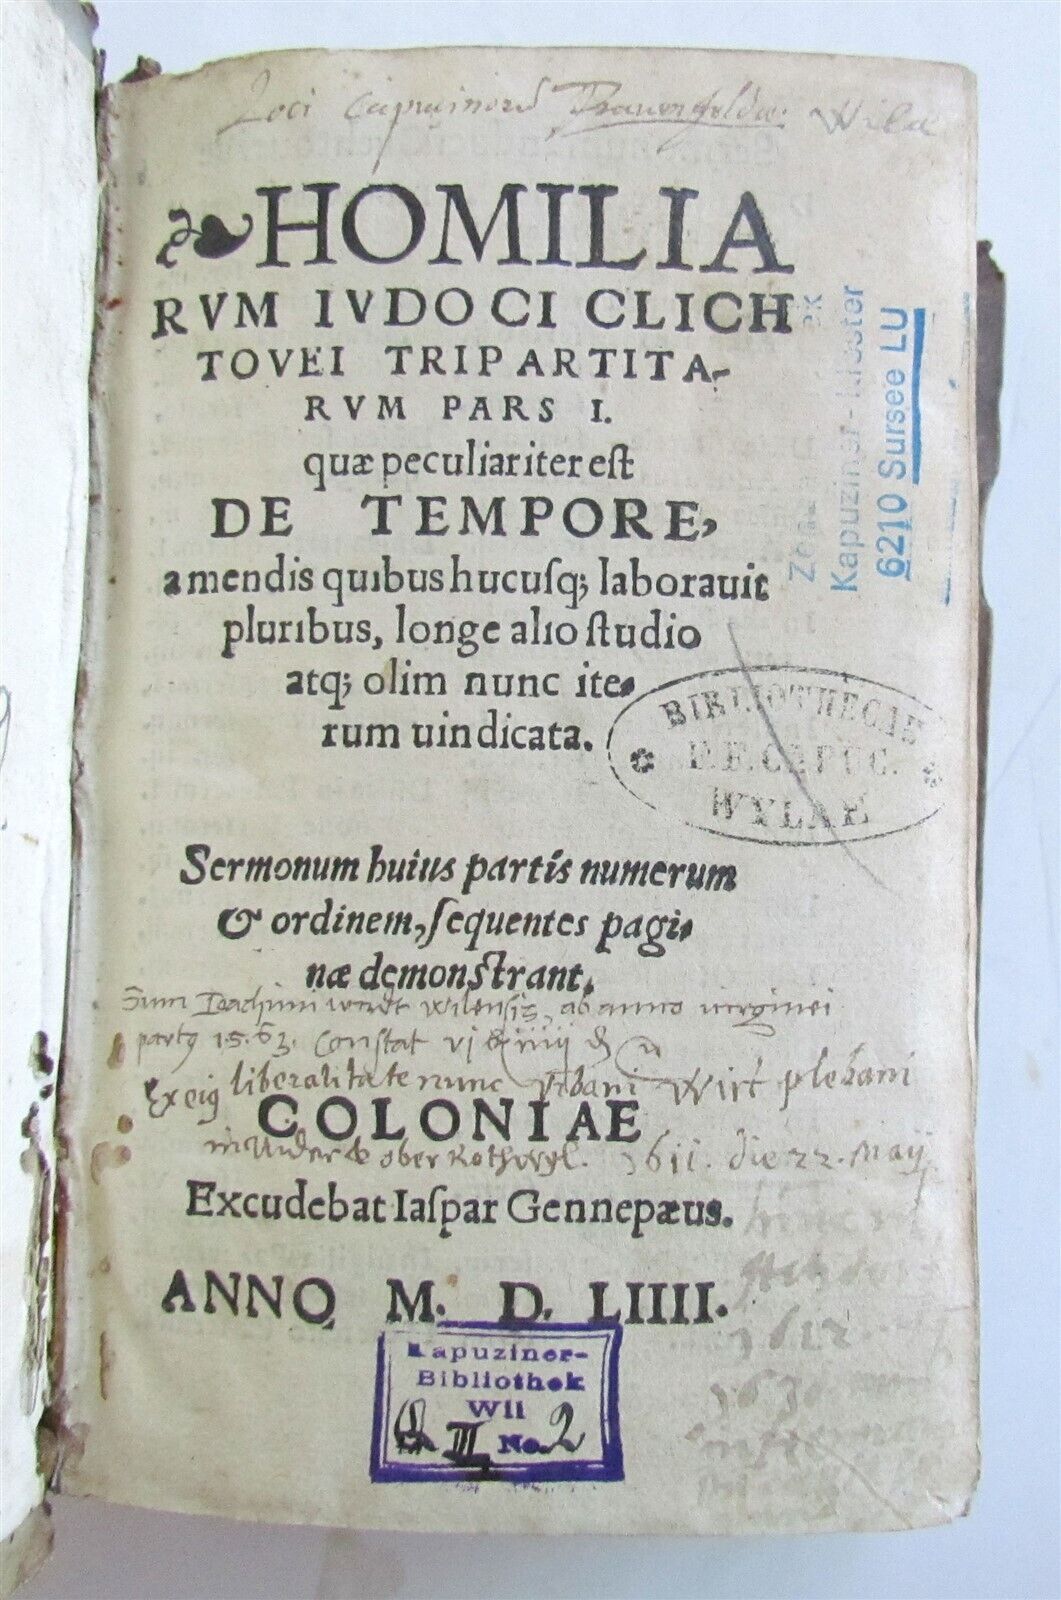 Loci Capucinorũ Frauenfeldae. Wilae
HOMILIA
RVM IVDOCI CLICH
TOVEI TRIPARTITA-
RVM PARS I.
quæ peculiariter est
DE TEMPORE,
a mendis quibus hucusq; laborauit
pluribus, longe alio studio
atq; olim nunc ite-
rum uindicata.
Kapuziner-Kloster
6210 Sursee LU
BIBLIOTHECAE
F.F. CAPUC.
WYLAE
Sermonum huius partis numerum
& ordinem, sequentes pagi-
næ demonstrant.
Sum Ioachimi Wilensis, ab anno virginei
party 15.63. Constat
liberalitate nunc Vrbani Wirt plebani
COLONIAE
ober 1611. die 22. Maij
Excudebat Iaspar Gennepæus.
ANNO M. D. LIIII.
1612
Kapuziner-
Bibliothek
Wil
III No. 2